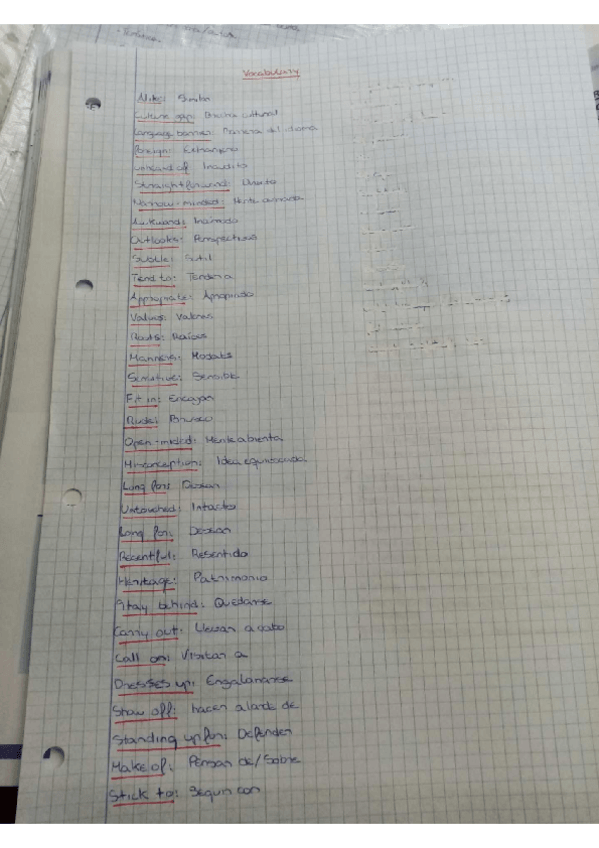 Vocabulary
Alike: Similar
Culture gap: Brecha cultural
Language barrier: Barrera del idioma
Foreign: Extranjero
unheard of: Inaudito
Straightforward: Directo
Narrow-minded: Mente cerrada
Awkward: Incómodo
Outlooks: Perspectivas
Subtle: Sutil
Tend to: Tender a
Appropriate: Apropiado
Values: Valores
Roots: Raíces
Manners: Modales
Sensitive: Sensible
Fit in: Encajar
Rude: Brusco
Open-minded: Mente abierta
Misconception: Idea equivocada
Long for: Desear
Untouched: Intacto
Long for: Desear
Resentful: Resentido
Heritage: Patrimonio
Stay behind: Quedarse
Carry out: Llevar a cabo
Call on: Visitar a
Dresses up: Engalanarse
Show off: hacer alarde de
Standing up for: Defender
Make of: Pensar de/sobre
Stick to: Seguir con